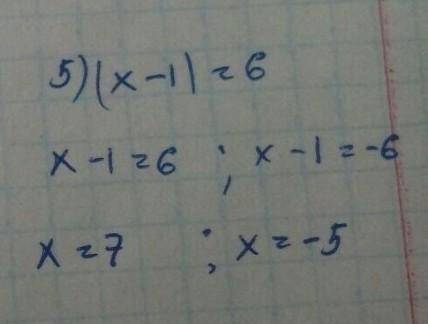 5) |x - 1| = 6
x - 1 = 6 ; x - 1 = -6
x = 7 ; x = -5